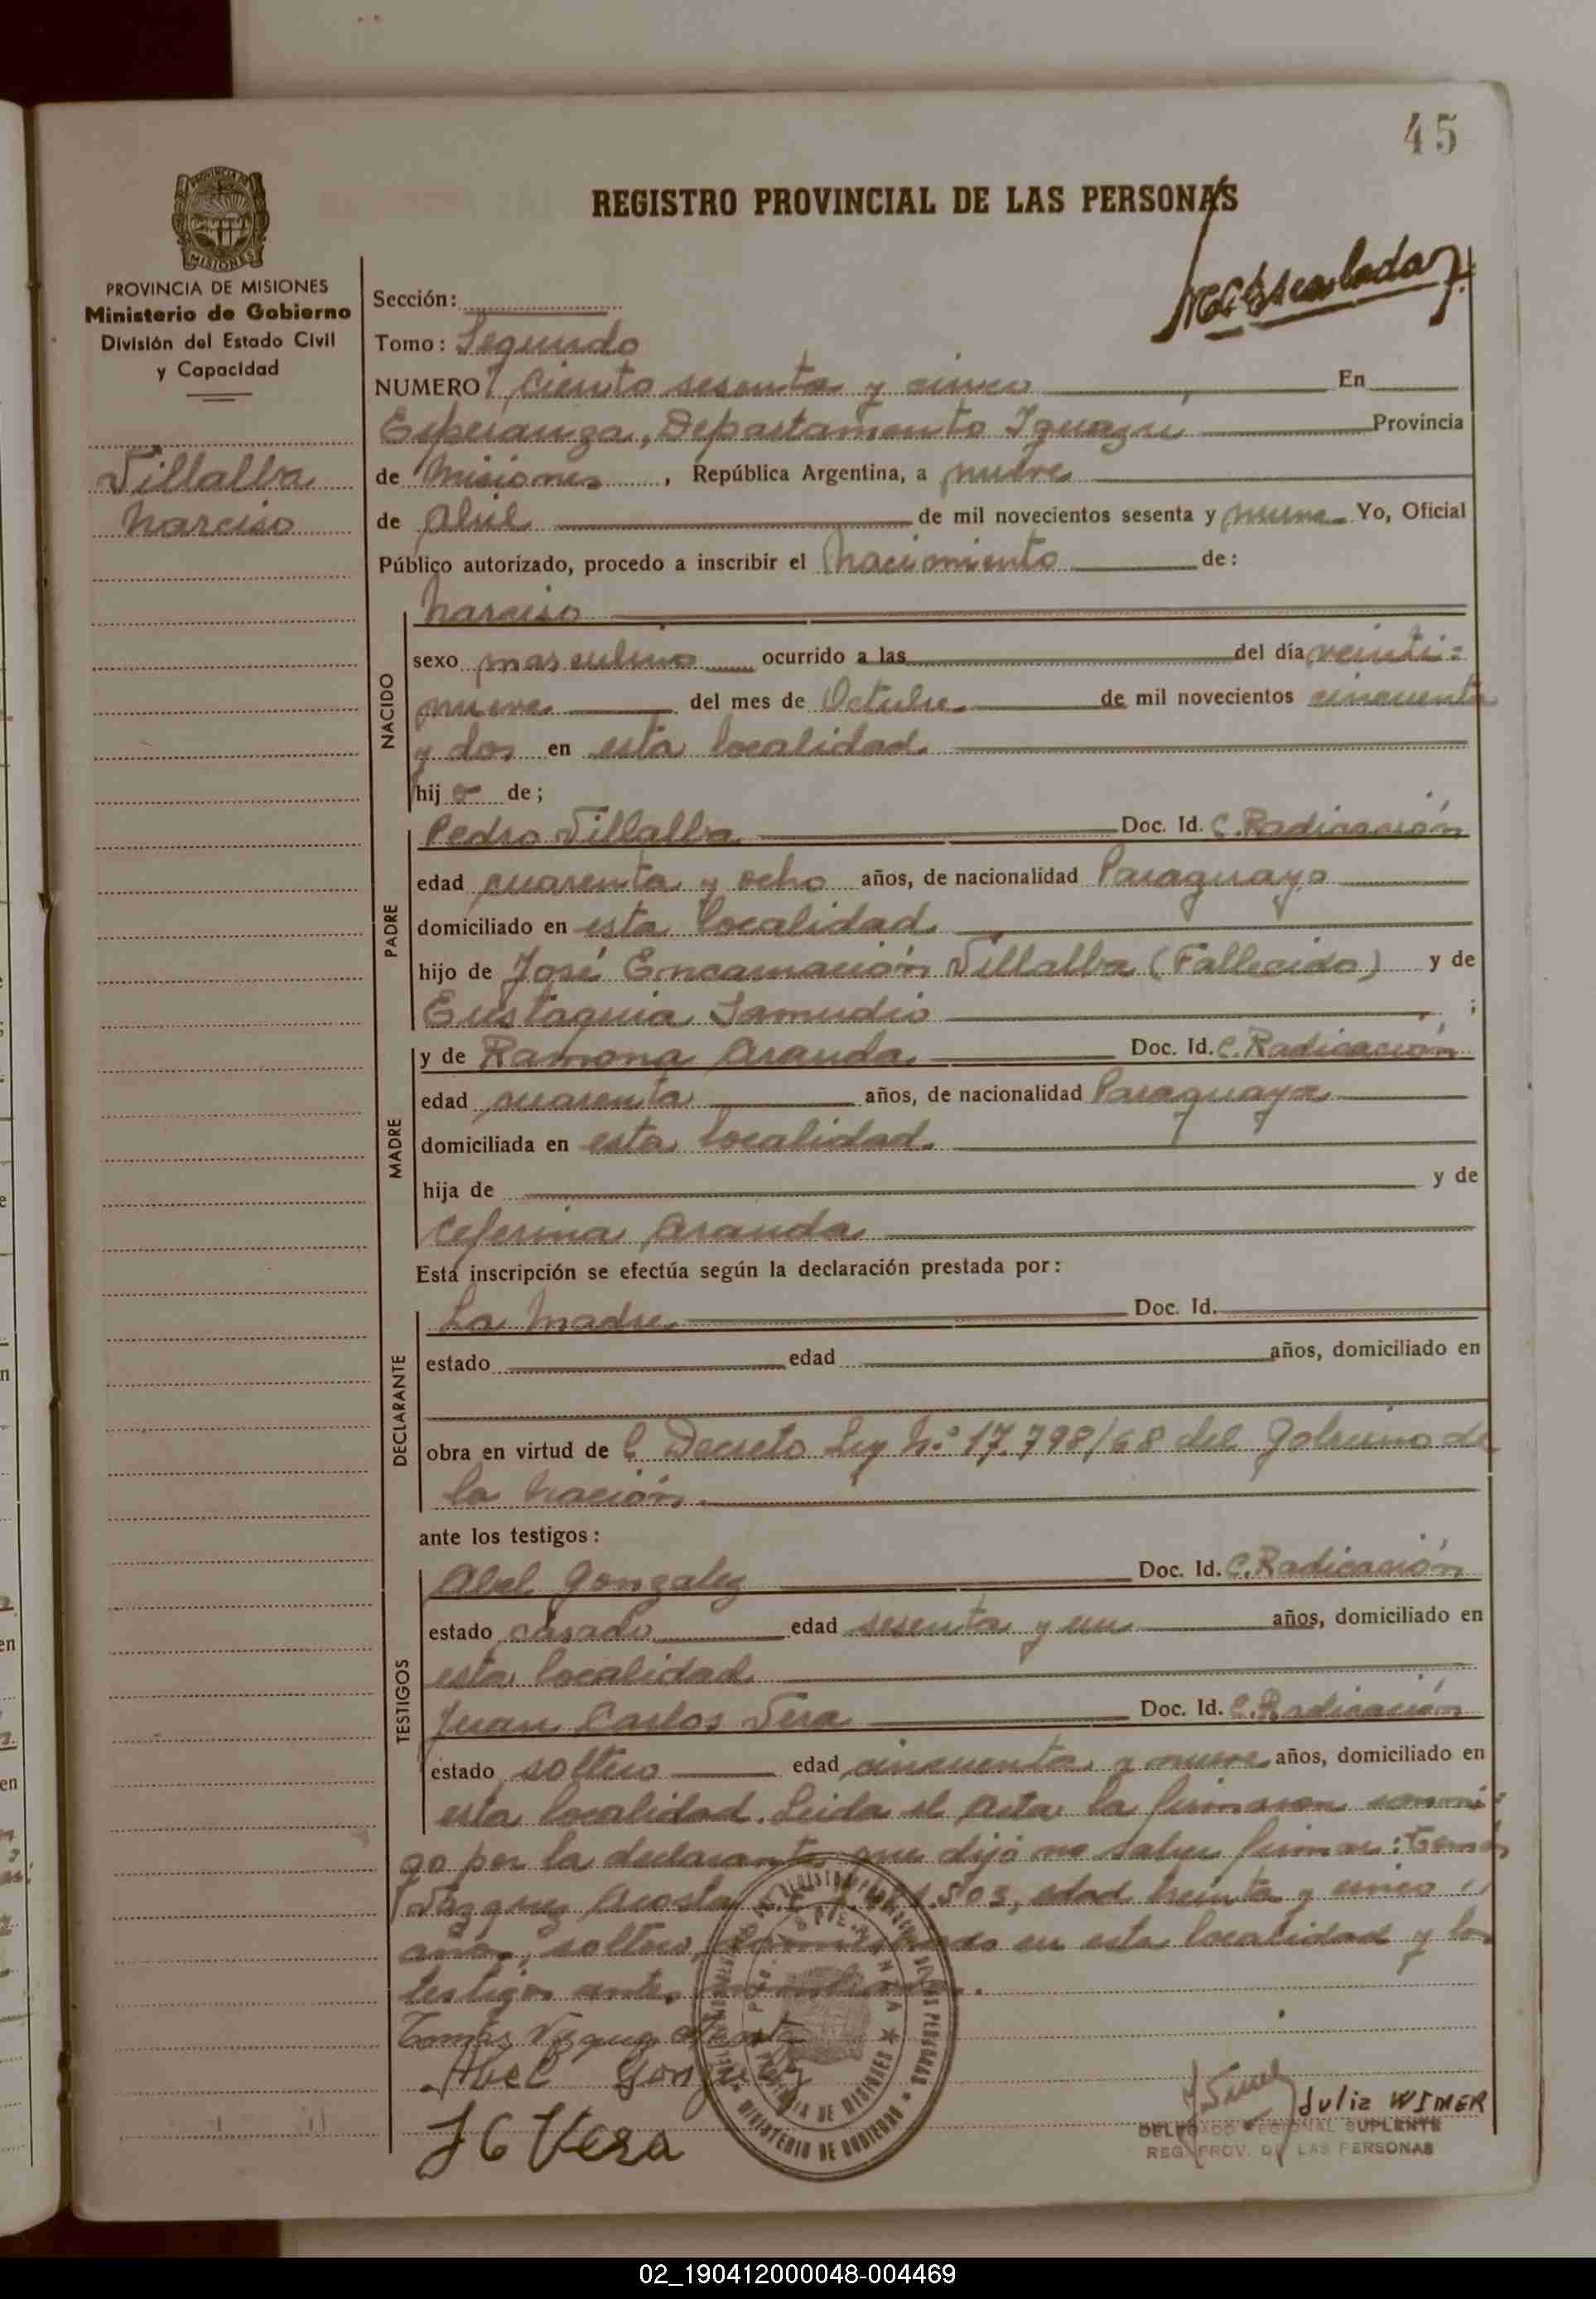 45
REGISTRO PROVINCIAL DE LAS PERSONAS
PROVINCIA DE MISIONES
Ministerio de Gobierno
División del Estado Civil
y Capacidad
Villalba
Narciso
Sección:
Tomo: Segundo
NUMERO ciento sesenta y cinco En
Esperanza, Departamento Iguazu Provincia
de Misiones, República Argentina, a nueve
de Abril de mil novecientos sesenta y nueve Yo, Oficial
Público autorizado, procedo a inscribir el Nacimiento de:
NACIDO
Narciso
sexo masculino ocurrido a las del día veinti=
nueve del mes de Octubre de mil novecientos cincuenta
y dos en esta localidad.
hijo de;
PADRE
Pedro Villalba Doc. Id. C. Radicación
edad cuarenta y ocho años, de nacionalidad Paraguayo
domiciliado en esta localidad.
hijo de José Encarnación Villalba (Fallecido) y de
Eustaquia Samudio ;
MADRE
y de Ramona Aranda Doc. Id. C. Radicación
edad cuarenta años, de nacionalidad Paraguaya
domiciliada en esta localidad.
hija de y de
Ceferina Aranda
Esta inscripción se efectúa según la declaración prestada por:
DECLARANTE
La Madre Doc. Id.
estado edad años, domiciliado en
obra en virtud de Decreto Ley N.° 17.798/68 del Gobierno de
la Nación.
ante los testigos:
TESTIGOS
Abel Gonzalez Doc. Id. C. Radicación
estado casado edad sesenta y un años, domiciliado en
esta localidad
Juan Carlos Vera Doc. Id. C. Radicación
estado soltero edad cincuenta y nueve años, domiciliado en
esta localidad. Leida el Acta la firmaron conmi=
go por la declarante que dijo no saber firmar: Tomás
Vázquez Acosta 503, edad treinta y cinco
años, soltero, domiciliado en esta localidad y los
testigos antes
Tomás Vázquez Acosta
Abel Gonzalez
JC Vera
ESPERANZA
PROVINCIA DE MISIONES
MINISTERIO DE GOBIERNO
Julia WIMER
DELEGADO REGIONAL SUPLENTE
REG. PROV. DE LAS PERSONAS
02_190412000048-004469